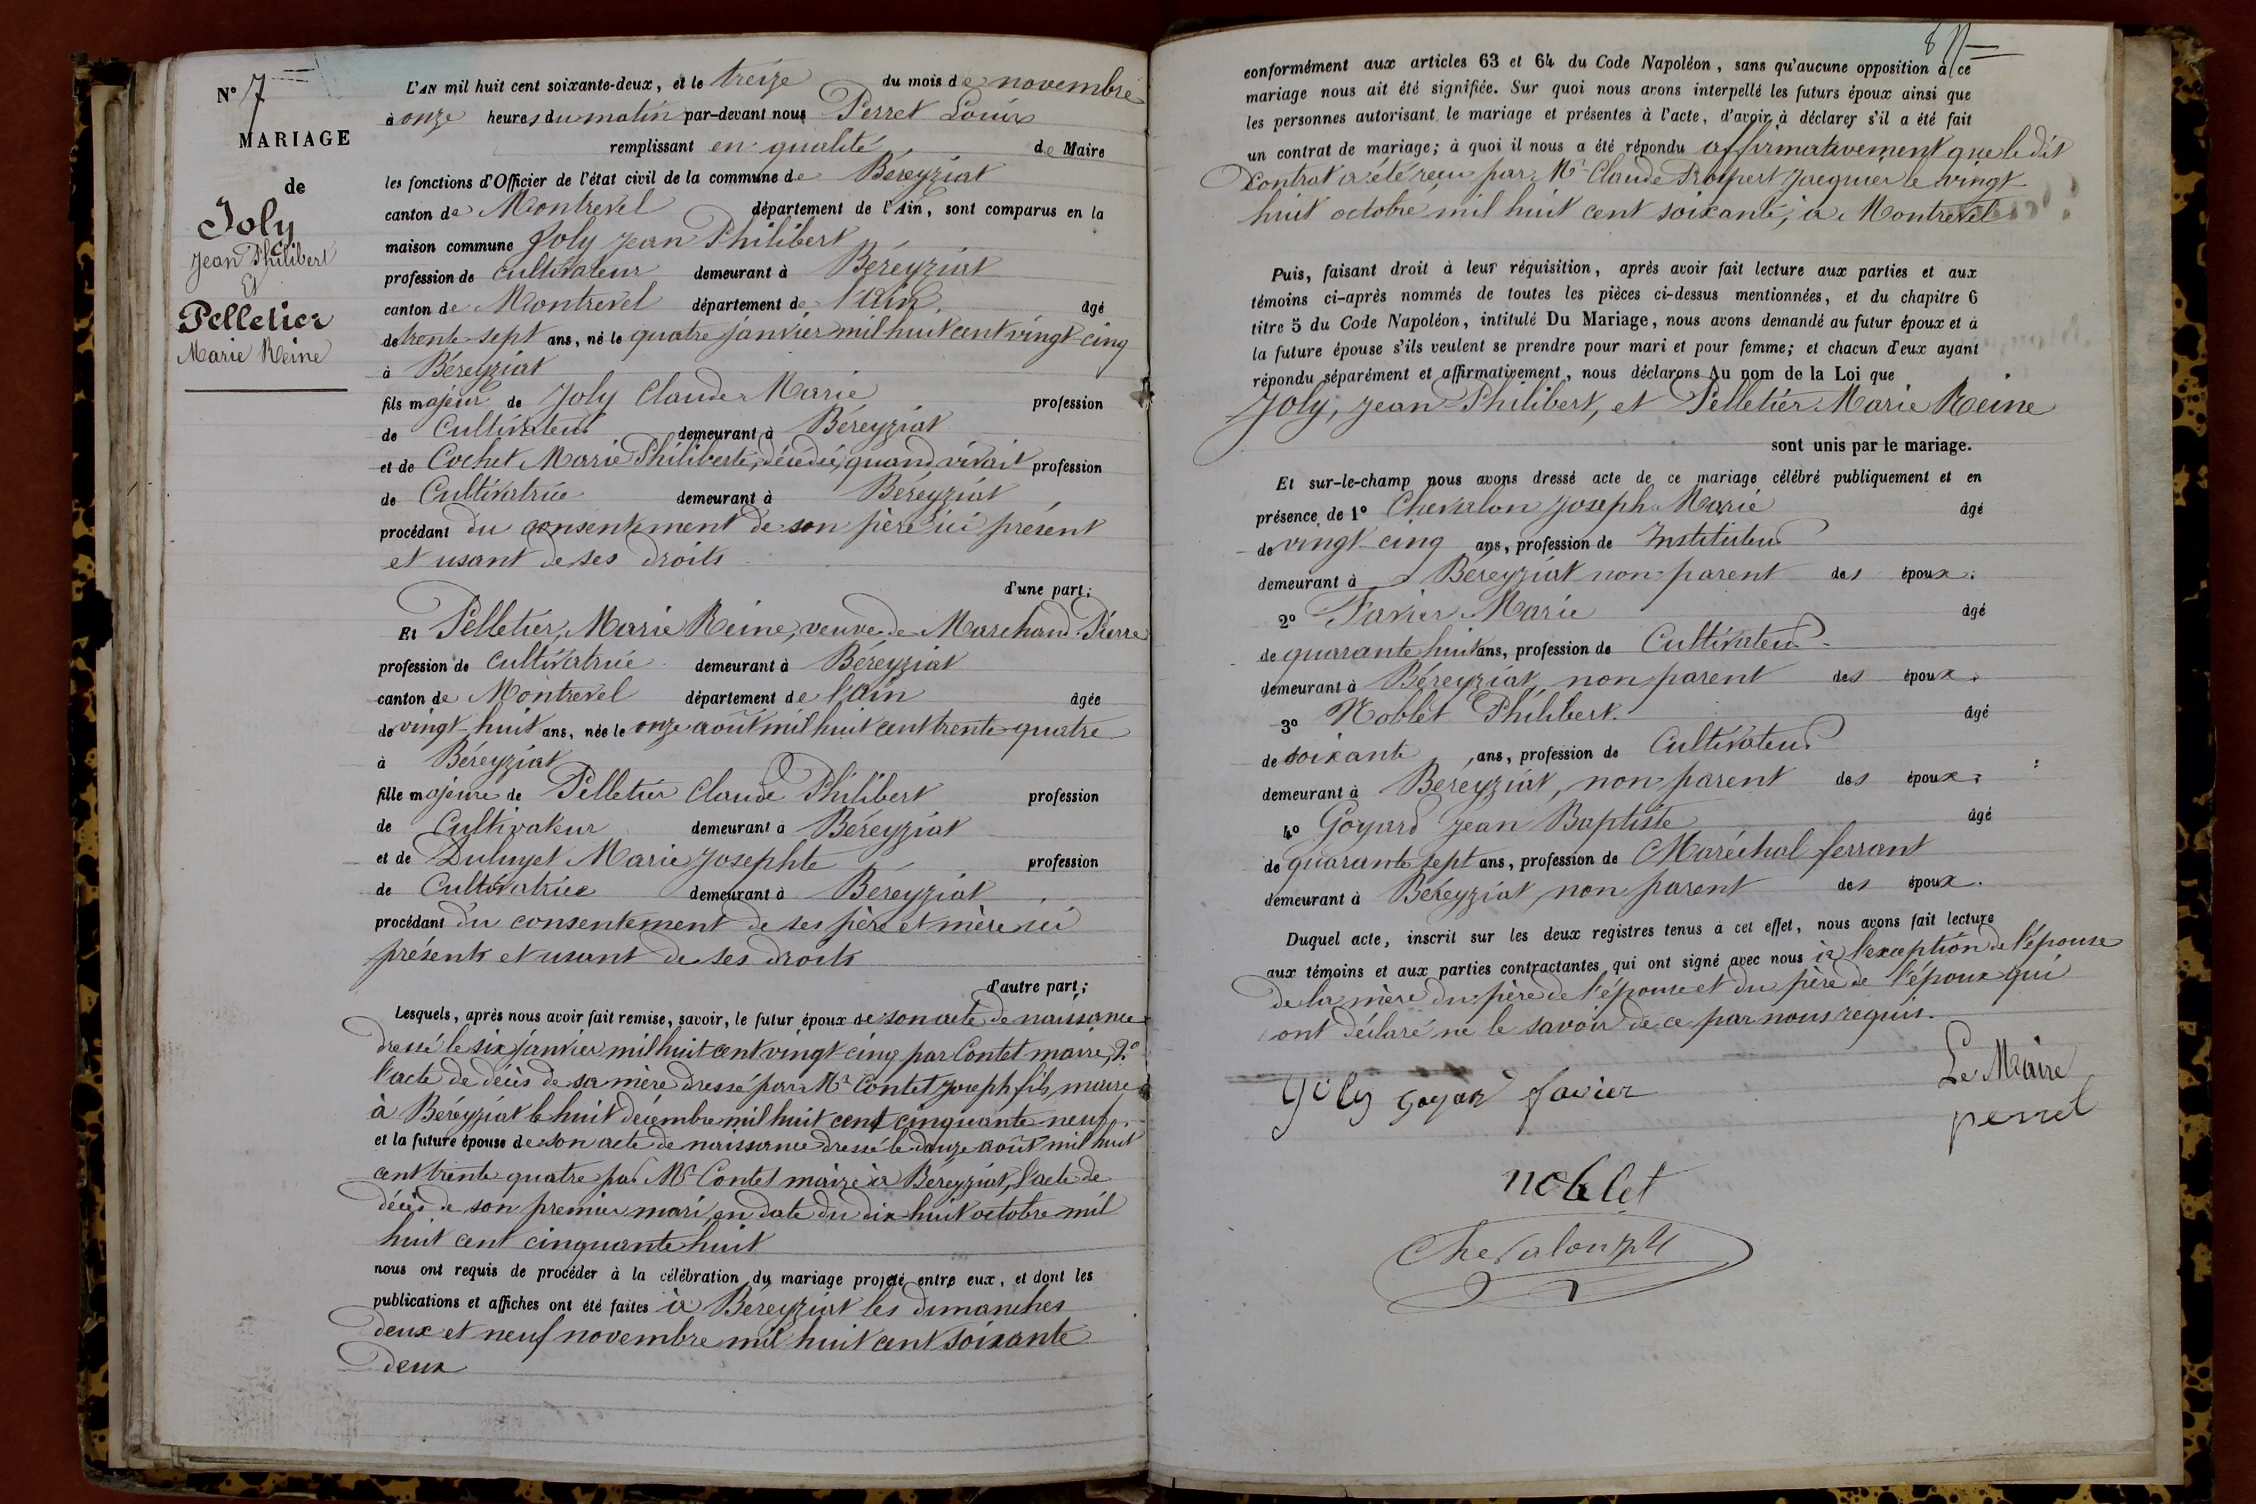 N° 7
MARIAGE
de
Joly
Jean Philibert
Et
Pelletier
Marie Reine
L'AN mil huit cent soixante-deux, et le treize du mois de novembre
à onze heures du matin par-devant nous Perret Louis
remplissant en qualité de Maire
les fonctions d'Officier de l'état civil de la commune de Béreyziat
canton de Montrevel département de l'Ain, sont comparus en la
maison commune Joly Jean Philibert
profession de cultivateur demeurant à Béreyziat
canton de Montrevel département de l'Ain, âgé
de trente-sept ans, né le quatre janvier mil huit cent vingt-cinq
à Béreyziat
fils majeur de Joly Claude Marie profession
de Cultivateur demeurant à Béreyziat
et de Cochet Marie Philiberte, décédée, quand vivait profession
de Cultivatrice demeurant à Béreyziat
procédant du consentement de son père ici présent
et usant de ses droits
d'une part;
Et Pelletier, Marie Reine, veuve de Marchand Pierre
profession de cultivatrice demeurant à Béreyziat
canton de Montrevel département de l'Ain âgée
de vingt-huit ans, née le onze août mil huit cent trente-quatre
à Béreyziat
fille majeure de Pelletier Claude Philibert profession
de Cultivateur demeurant à Béreyziat
et de Marie Josephte profession
de Cultivatrice demeurant à Béreyziat
procédant du consentement de ses père et mère ici
présents et usant de ses droits
d'autre part;
Lesquels, après nous avoir fait remise, savoir, le futur époux de son acte de naissance
dressé le six janvier mil huit cent vingt cinq par Contet maire, 2°
l'acte de décès de sa mère dressé par Mr Contet Joseph fils, maire
à Béreyziat le huit décembre mil huit cent cinquante neuf
et la future épouse de son acte de naissance dressé le douze août mil huit
cent trente quatre par Mr Contet maire à Béreyziat, l'acte de
décès de son premier mari, en date du dix huit octobre mil
huit cent cinquante huit
nous ont requis de procéder à la célébration du mariage projeté entre eux, et dont les
publications et affiches ont été faites à Béreyziat les dimanches
deux et neuf novembre mil huit cent soixante
deux
conformément aux articles 63 et 64 du Code Napoléon, sans qu'aucune opposition à ce
mariage nous ait été signifiée. Sur quoi nous avons interpellé les futurs époux ainsi que
les personnes autorisant le mariage et présentes à l'acte, d'avoir à déclarer s'il a été fait
un contrat de mariage; à quoi il nous a été répondu affirmativement que le dit
contrat a été reçu par Mr Claude Prospert Jacquier le vingt
huit octobre mil huit cent soixante, à Montrevel
Puis, faisant droit à leur réquisition, après avoir fait lecture aux parties et aux
témoins ci-après nommés de toutes les pièces ci-dessus mentionnées, et du chapitre 6
titre 5 du Code Napoléon, intitulé Du Mariage, nous avons demandé au futur époux et à
la future épouse s'ils veulent se prendre pour mari et pour femme; et chacun d'eux ayant
répondu séparément et affirmativement, nous déclarons Au nom de la Loi que
Joly, Jean-Philibert, et Pelletier Marie Reine
sont unis par le mariage.
Et sur-le-champ nous avons dressé acte de ce mariage célébré publiquement et en
présence de 1° Chevalon Joseph Marie âgé
de vingt-cinq ans, profession de Instituteur
demeurant à Béreyziat non parent des époux.
2° Favier Marie âgé
de quarante huit ans, profession de Cultivateur
demeurant à Béreyziat, non parent des époux.
3° Noblet Philibert. âgé
de soixante ans, profession de Cultivateur
demeurant à Bereyziat, non parent des époux;
4° Goyard Jean Baptiste âgé
de quarante sept ans, profession de Maréchal ferrant
demeurant à Béreyziat, non parent des époux.
Duquel acte, inscrit sur les deux registres tenus à cet effet, nous avons fait lecture
aux témoins et aux parties contractantes qui ont signé avec nous à l'exception de l'épouse
de la mère du père de l'épouse et du père de l'époux qui
ont déclaré ne le savoir de ce par nous requis.
Joly goyard favier
Le Maire
perret
noblet
Chevalon